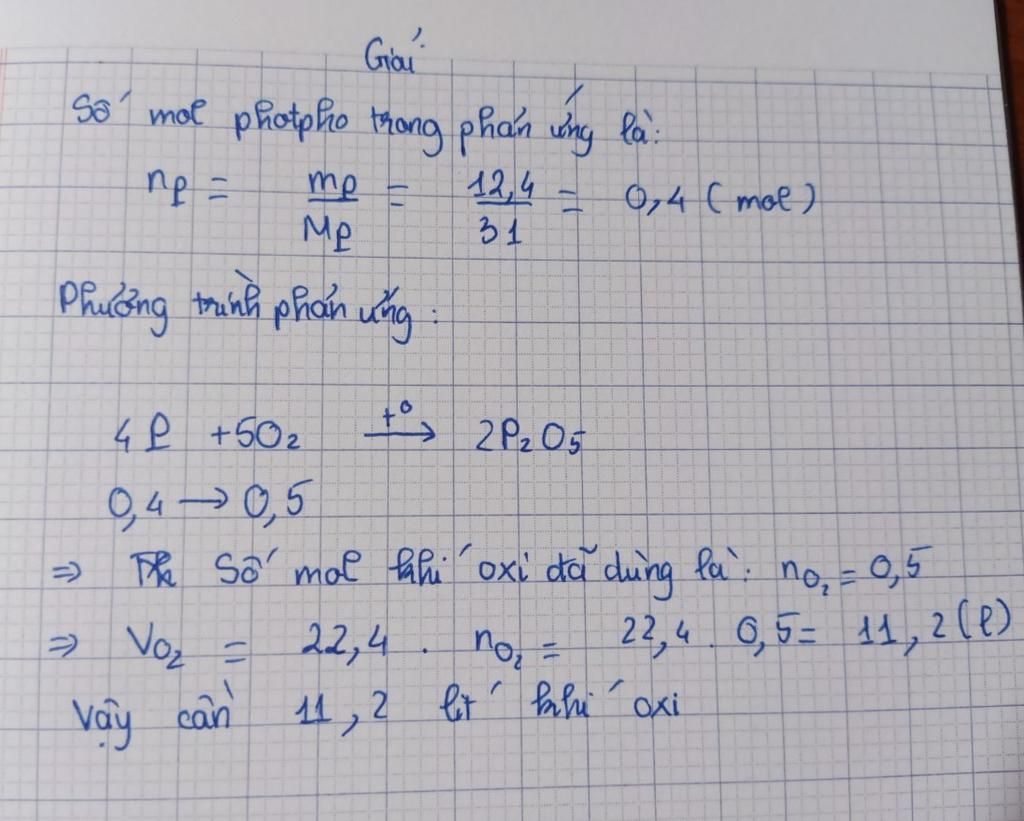 Giải
Số mol photpho trong phản ứng là:
nP = mP/MP = 12,4/31 = 0,4 (mol)
Phương trình phản ứng:
4P + 5O₂ —t°→ 2P₂O₅
0,4 → 0,5
⇒ Số mol khí oxi đã dùng là: nO₂ = 0,5
⇒ VO₂ = 22,4 . nO₂ = 22,4 . 0,5 = 11,2 (l)
Vậy cần 11,2 lít khí oxi